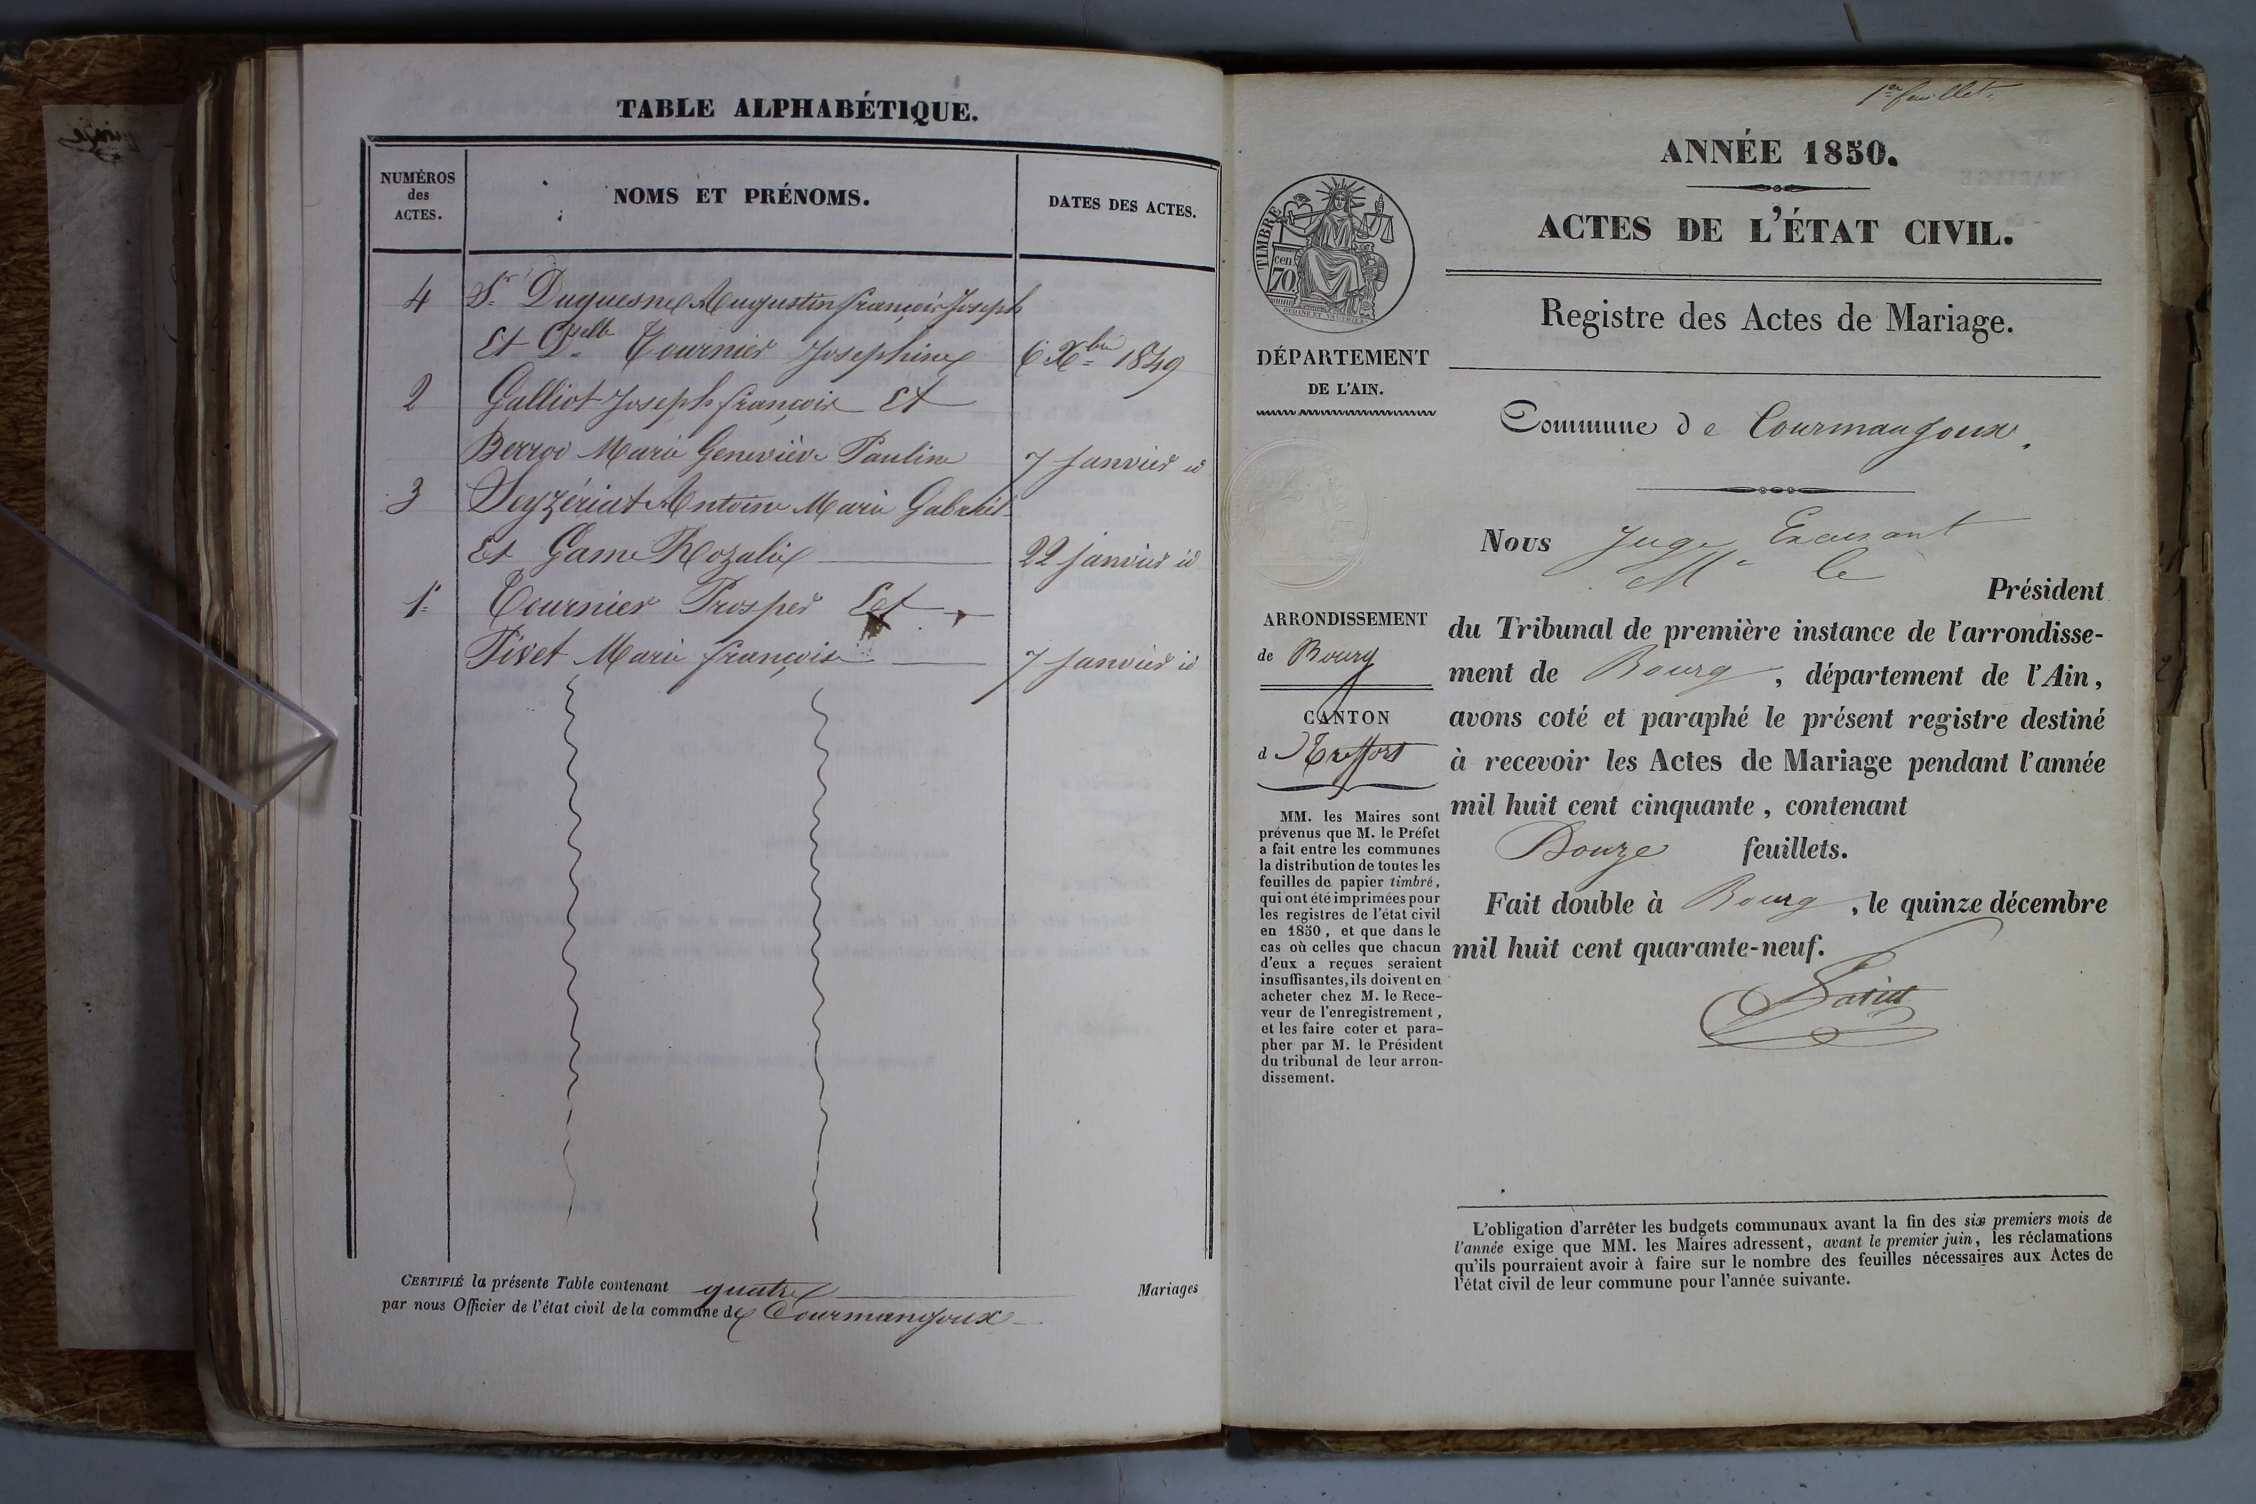 TABLE ALPHABÉTIQUE.
NUMÉROS
des
ACTES.
NOMS ET PRÉNOMS.
DATES DES ACTES.
4 Sr Duquesnel Augustin françois Joseph
Et Dselle Tournier Josephine 6 Xbre 1849
2 Galliot Joseph françois Et
Marie Geneviève Pauline 7 Janvier id
3 Seyzériat Antoine Marie Gabriel
Et Game Rozalie 22 janvier id
1er Tournier Prosper Eet
Pivet Marie françoise 7 Janvier id
CERTIFIÉ la présente Table contenant quatre Mariages
par nous Officier de l'état civil de la commune de Courmangoux
1er feuillet.
ANNÉE 1850.
ACTES DE L'ÉTAT CIVIL.
Registre des Actes de Mariage.
TIMBRE
70 cen
DÉPARTEMENT
DE L'AIN.
Commune de Courmangoux.
Nous Juge
Mr le Président
du Tribunal de première instance de l'arrondisse-
ment de Bourg, département de l'Ain,
avons coté et paraphé le présent registre destiné
à recevoir les Actes de Mariage pendant l'année
mil huit cent cinquante, contenant
Douze feuillets.
Fait double à Bourg, le quinze décembre
mil huit cent quarante-neuf.
ARRONDISSEMENT
de Bourg
CANTON
d Treffort
MM. les Maires sont
prévenus que M. le Préfet
a fait entre les communes
la distribution de toutes les
feuilles de papier timbré,
qui ont été imprimées pour
les registres de l'état civil
en 1850, et que dans le
cas où celles que chacun
d'eux a reçues seraient
insuffisantes, ils doivent en
acheter chez M. le Rece-
veur de l'enregistrement,
et les faire coter et para-
pher par M. le Président
du tribunal de leur arron-
dissement.
L'obligation d'arrêter les budgets communaux avant la fin des six premiers mois de
l'année exige que MM. les Maires adressent, avant le premier juin, les réclamations
qu'ils pourraient avoir à faire sur le nombre des feuilles nécessaires aux Actes de
l'état civil de leur commune pour l'année suivante.